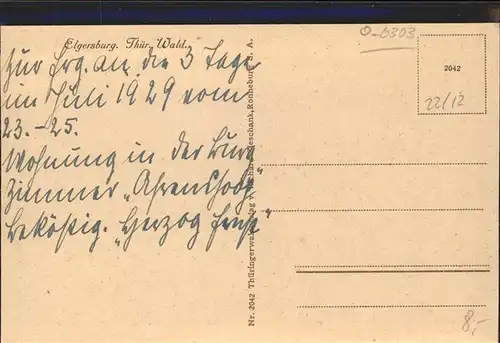 Elgersburg. Thür. Wald.
Zur Erg. an die 3 Tage
im Juli 1929 vom
23.-25.
Wohnung in der Burg
Zimmer „Ahrenshoop"
Beköstig. „Herzog Ernst"
Nr. 2042 Thüringerwald Geschank, Ronneburg A.
O-6303
2042
22/12
8,-